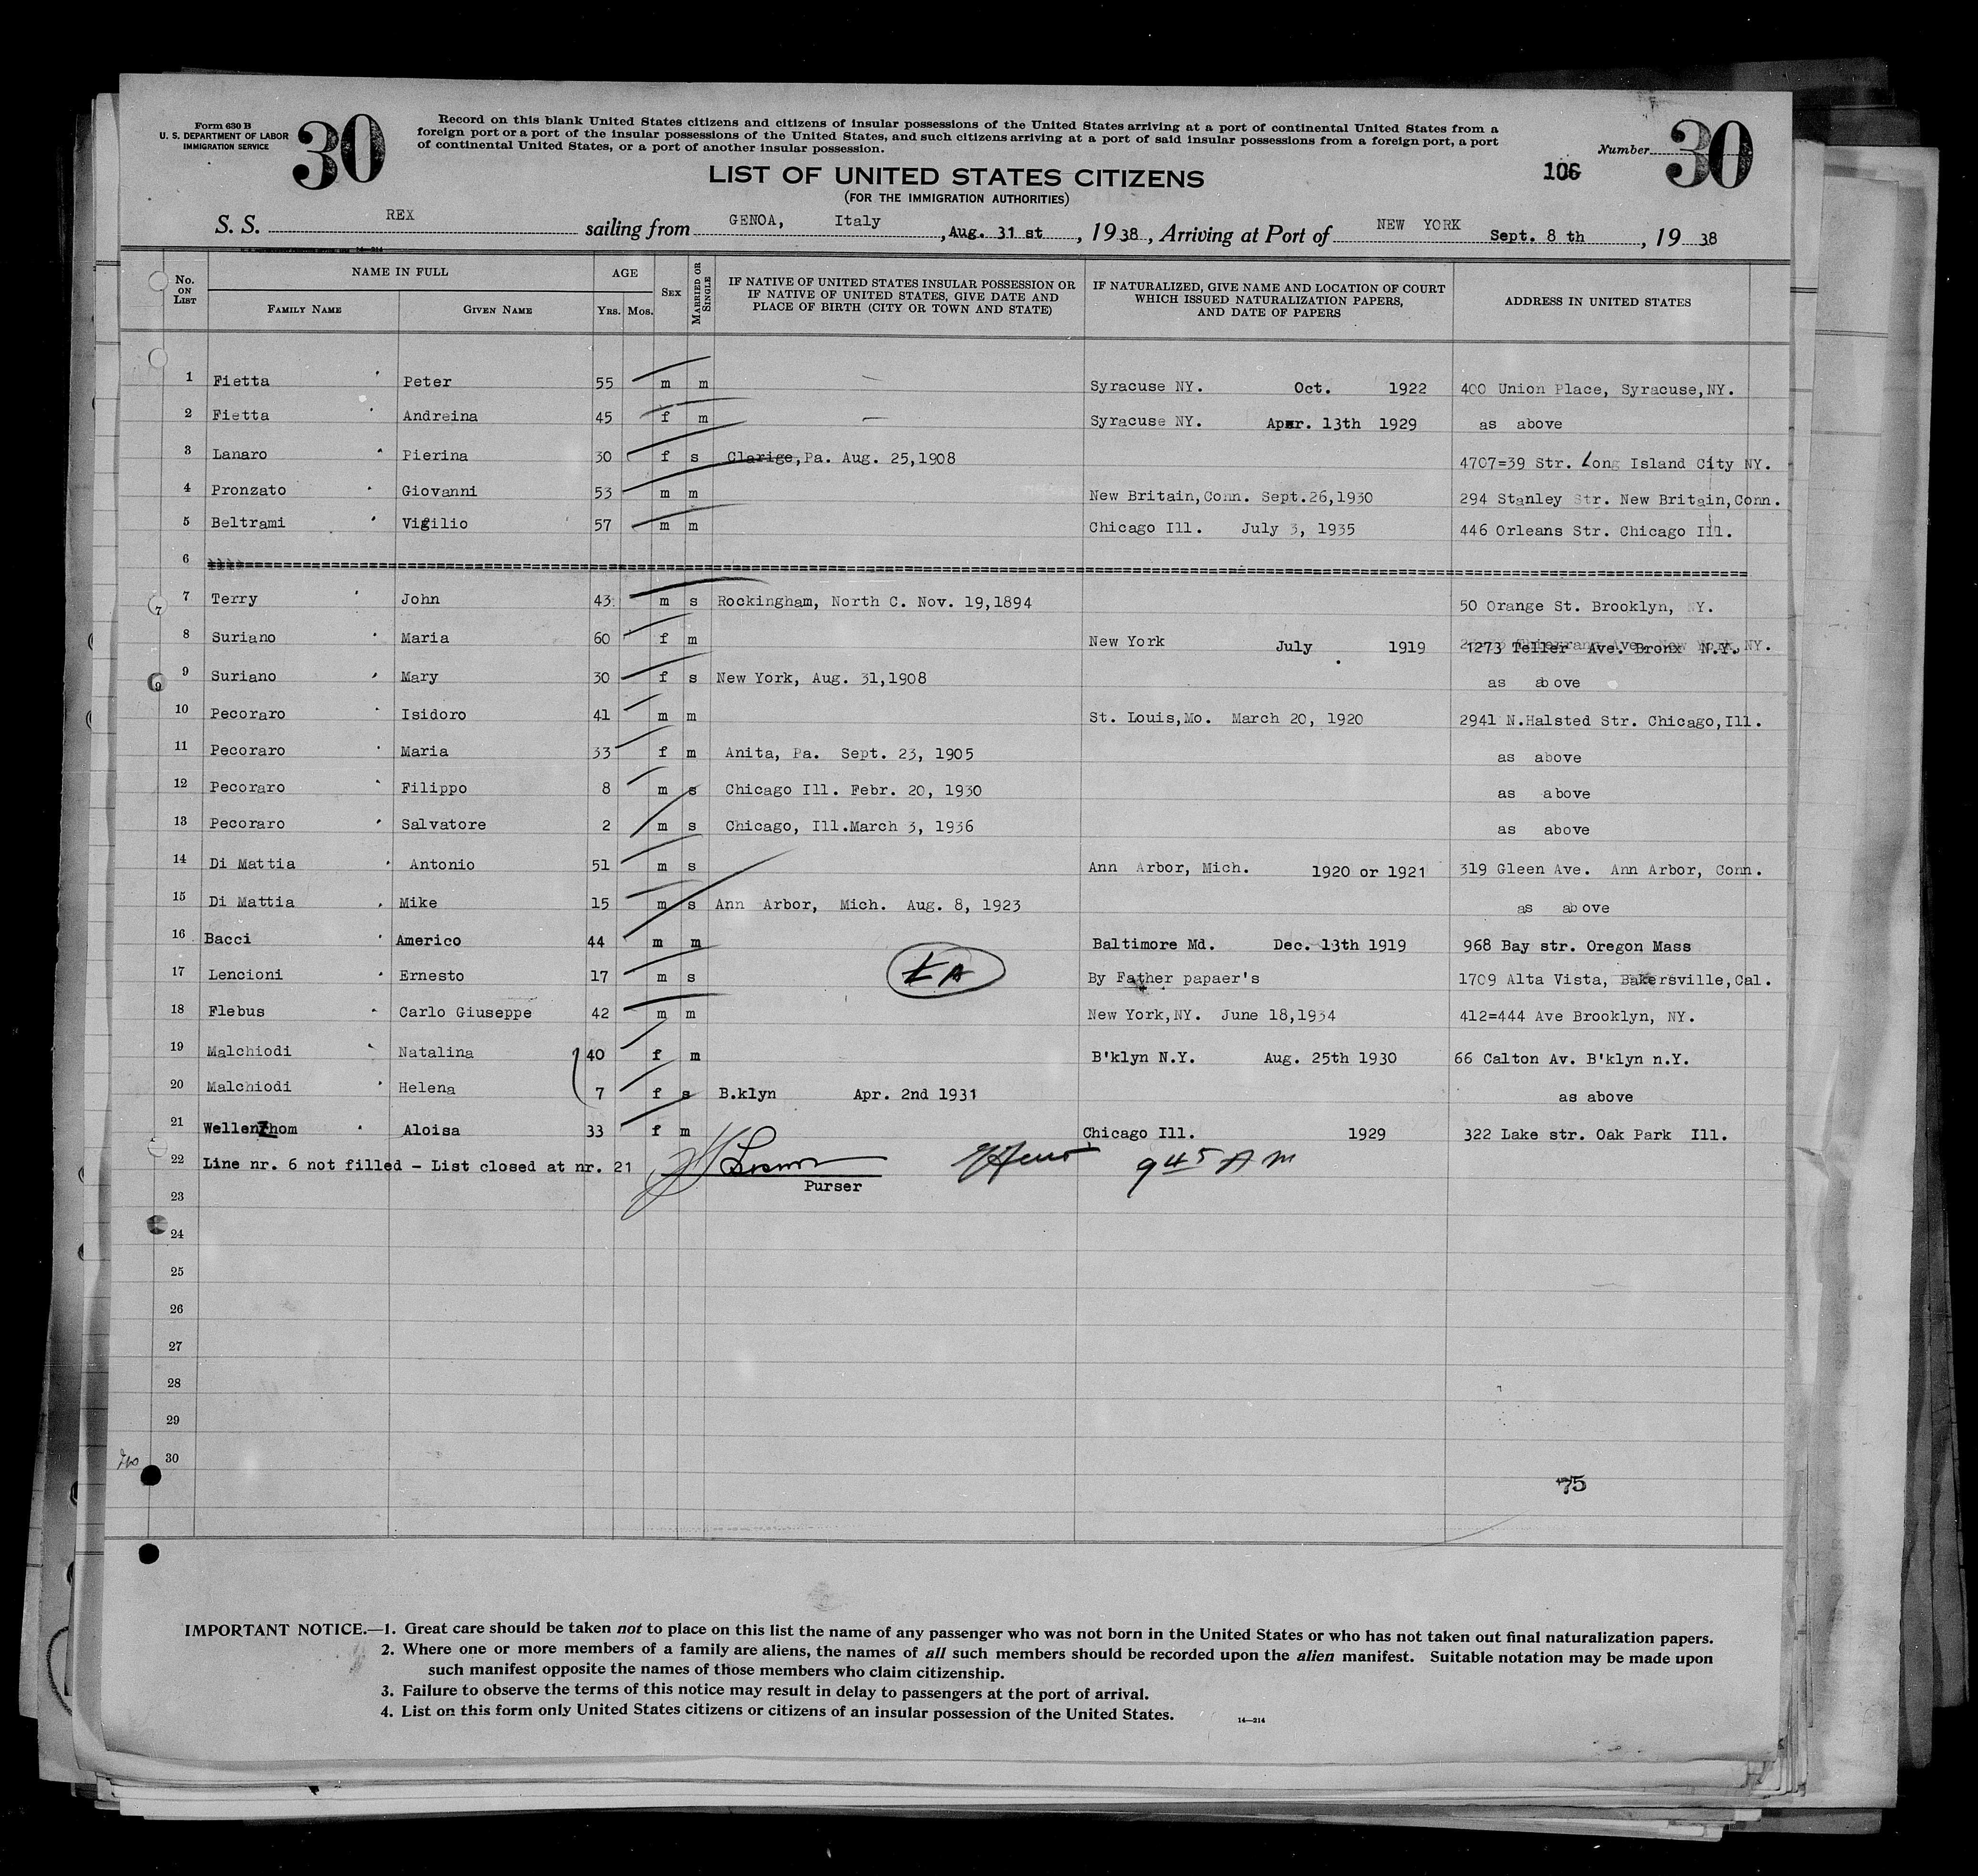 Form 630 B
U. S. DEPARTMENT OF LABOR
IMMIGRATION SERVICE
30
Record on this blank United States citizens and citizens of insular possessions of the United States arriving at a port of continental United States from a
foreign port or a port of the insular possessions of the United States, and such citizens arriving at a port of said insular possessions from a foreign port, a port
of continental United States, or a port of another insular possession.
Number 30
106
LIST OF UNITED STATES CITIZENS
(FOR THE IMMIGRATION AUTHORITIES)
S. S. REX sailing from GENOA, Italy, Aug. 31 st, 1938, Arriving at Port of NEW YORK Sept. 8 th, 1938
14—214
No. ON LIST NAME IN FULL FAMILY NAME GIVEN NAME AGE YRS. MOS. SEX MARRIED OR SINGLE IF NATIVE OF UNITED STATES INSULAR POSSESSION OR IF NATIVE OF UNITED STATES, GIVE DATE AND PLACE OF BIRTH (CITY OR TOWN AND STATE) IF NATURALIZED, GIVE NAME AND LOCATION OF COURT WHICH ISSUED NATURALIZATION PAPERS, AND DATE OF PAPERS ADDRESS IN UNITED STATES
1 Fietta Peter 55 m m — Syracuse NY. Oct. 1922 400 Union Place, Syracuse,NY.
2 Fietta Andreina 45 f m — Syracuse NY. Apr. 13th 1929 as above
3 Lanaro Pierina 30 f s Clarige,Pa. Aug. 25,1908 4707=39 Str. Long Island City NY.
4 Pronzato Giovanni 53 m m New Britain,Conn. Sept.26,1930 294 Stanley Str. New Britain,Conn.
5 Beltrami Vigilio 57 m m Chicago Ill. July 3, 1935 446 Orleans Str. Chicago Ill.
6
7 Terry John 43 m s Rockingham, North C. Nov. 19,1894 50 Orange St. Brooklyn, NY.
8 Suriano Maria 60 f m New York July 1919 1273 Teller Ave. Bronx N.Y.
9 Suriano Mary 30 f s New York, Aug. 31,1908 as above
10 Pecoraro Isidoro 41 m m St. Louis,Mo. March 20, 1920 2941 N.Halsted Str. Chicago,Ill.
11 Pecoraro Maria 33 f m Anita, Pa. Sept. 23, 1905 as above
12 Pecoraro Filippo 8 m s Chicago Ill. Febr. 20, 1930 as above
13 Pecoraro Salvatore 2 m s Chicago, Ill.March 3, 1936 as above
14 Di Mattia Antonio 51 m s Ann Arbor, Mich. 1920 or 1921 319 Gleen Ave. Ann Arbor, Conn.
15 Di Mattia Mike 15 m s Ann Arbor, Mich. Aug. 8, 1923 as above
16 Bacci Americo 44 m m Baltimore Md. Dec. 13th 1919 968 Bay str. Oregon Mass
17 Lencioni Ernesto 17 m s By Father papaer's 1709 Alta Vista, Bakersville,Cal.
18 Flebus Carlo Giuseppe 42 m m New York,NY. June 18,1934 412=444 Ave Brooklyn, NY.
19 Malchiodi Natalina 40 f m B'klyn N.Y. Aug. 25th 1930 66 Calton Av. B'klyn n.Y.
20 Malchiodi Helena 7 f s B.klyn Apr. 2nd 1931 as above
21 Wellenzhom Aloisa 33 f m Chicago Ill. 1929 322 Lake str. Oak Park Ill.
22 Line nr. 6 not filled - List closed at nr. 21 9 45 A M
Purser
23
24
25
26
27
28
29
30
75
IMPORTANT NOTICE.—1. Great care should be taken not to place on this list the name of any passenger who was not born in the United States or who has not taken out final naturalization papers.
2. Where one or more members of a family are aliens, the names of all such members should be recorded upon the alien manifest. Suitable notation may be made upon
such manifest opposite the names of those members who claim citizenship.
3. Failure to observe the terms of this notice may result in delay to passengers at the port of arrival.
4. List on this form only United States citizens or citizens of an insular possession of the United States. 14—214